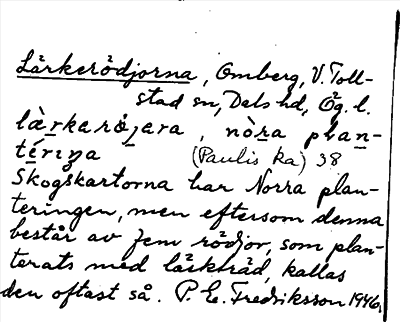 Lärkerödjorna, Omberg, V. Toll-
stad sn, Dals hd, Ög. l.
là̱rkerø̱jera, nò̱ra plan-
té̱riŋa (Paulis ka) 38
Skogskartorna har Norra plan-
teringen, men eftersom denna
består av fem rödjor, som plan-
terats med lärkträd, kallas
den oftast så. P. E. Fredriksson 1946.